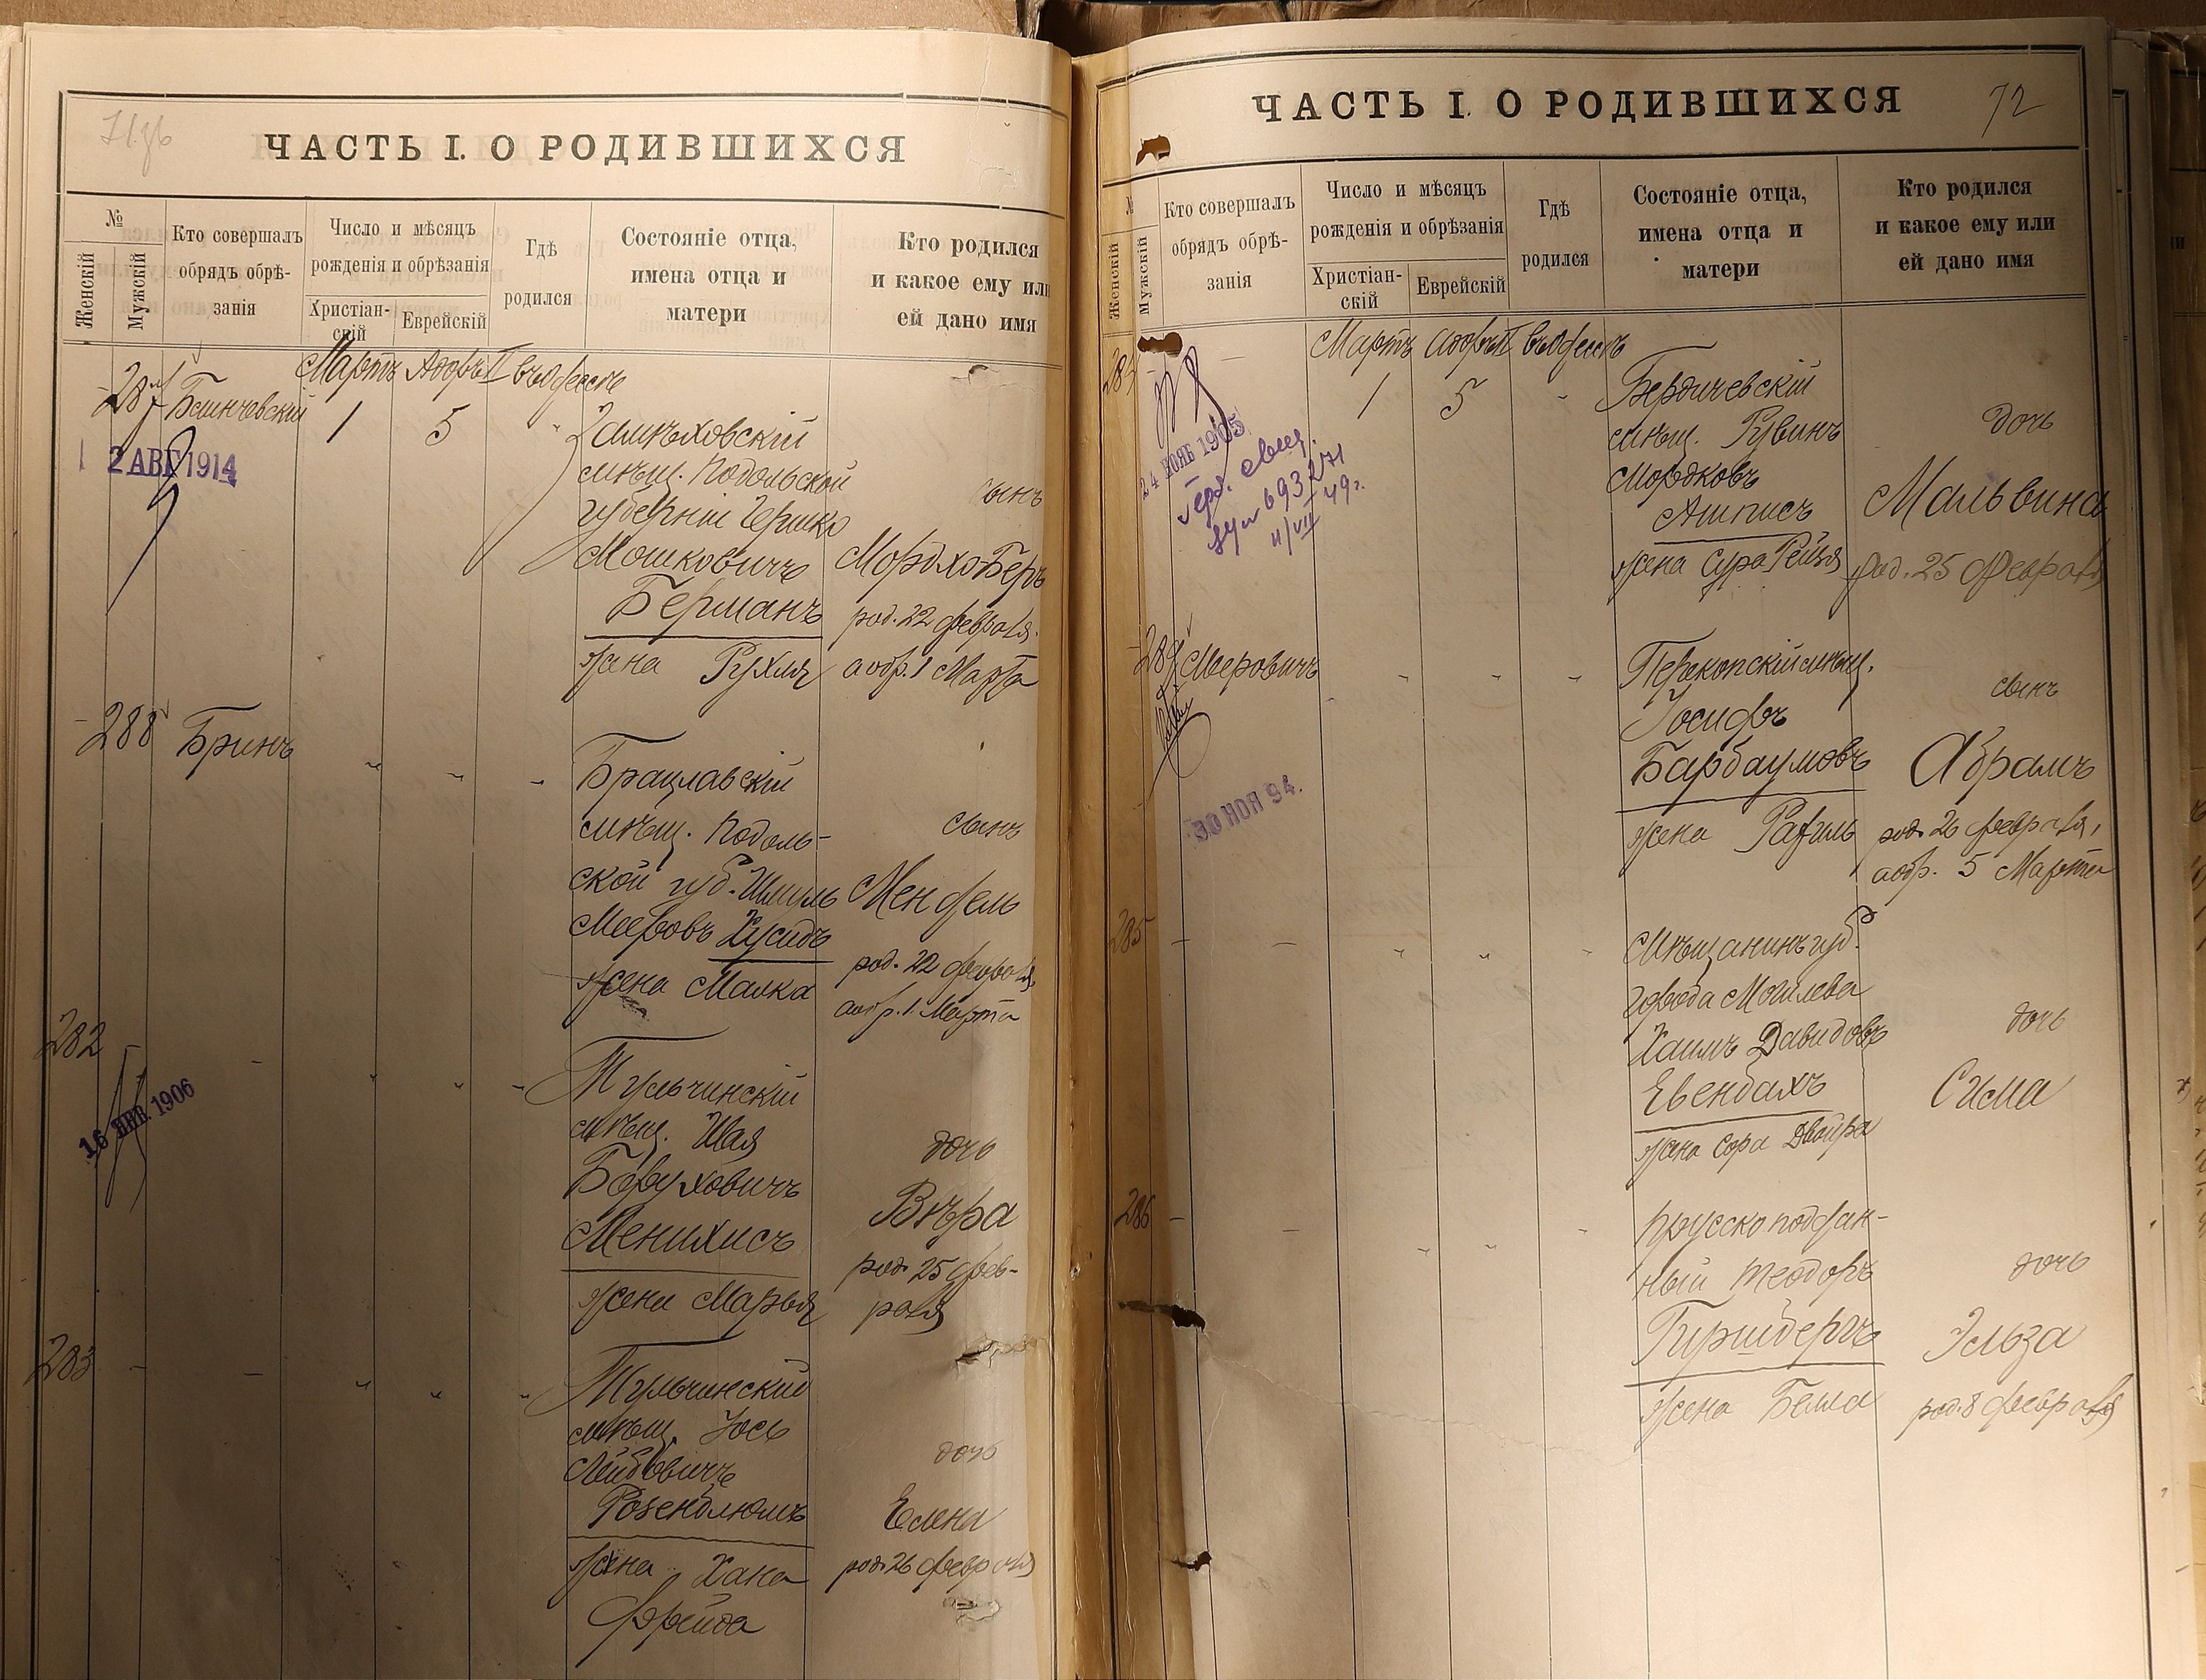 71 об
ЧАСТЬ I. О РОДИВШИХСЯ
№
Женскій
Мужскій
Кто совершалъ
обрядъ обрѣ-
занія
Число и мѣсяцъ
рожденія и обрѣзанія
Христіан-
скій
Еврейскій
Гдѣ
родился
Состояніе отца,
имена отца и
матери
Кто родился
и какое ему или
ей дано имя
Мартъ Адаръ II въ Одессѣ
287
1
5
2 АВГ 1914
мѣщ. Подольской
губерніи Гершко
Мошковичъ
Берманъ
жена Рухля
сынъ
Мордхо-Беръ
род. 22 февраля
а обр. 1 Марта
288 Бринъ
Брацлавскій
мѣщ. Подоль-
ской губ. Шмуль
Мееровъ Хусидъ
жена Малка
сынъ
Мендель
род. 22 февраля
а обр. 1. Марта
282
16 ЯНВ. 1906
Тульчинскій
мѣщ. Шая
Боруховичъ
Менихисъ
жена Марья
дочь
Вѣра
род. 25 фев-
раля
283
Тульчинскій
мѣщ. Іось
Лейбовичъ
Розенблюмъ
жена Хана
Фрейда
дочь
Елена
род. 26 февраля
72
ЧАСТЬ I. О РОДИВШИХСЯ
№
Женскій
Мужскій
Кто совершалъ
обрядъ обрѣ-
занія
Число и мѣсяцъ
рожденія и обрѣзанія
Христіан-
скій
Еврейскій
Гдѣ
родился
Состояніе отца,
имена отца и
матери
Кто родился
и какое ему или
ей дано имя
Мартъ Адаръ II въ Одессѣ
1
5
24 НОЯБ 1905
693271
11/VII 49 г.
Бердичевскій
мѣщ. Рувинъ
Мордковъ
Ашписъ
жена Сура Рейзя
дочь
Мальвина
род. 25 февраля
289 Меровичъ
30 НОЯ 94.
Перекопскій мѣщ.
Іосифъ
Барбаумовъ
жена Рахиль
сынъ
Абрамъ
род. 26 февраля,
а обр. 5 Марта
285
Мѣщанинъ губ.
города Могилева
Хаимъ Давидовъ
Евенбахъ
жена Сора Двойра
дочь
Сима
286
прусско поддан-
ный Теодоръ
Гиршбергъ
жена Белла
дочь
Эльза
род. 8 февраля